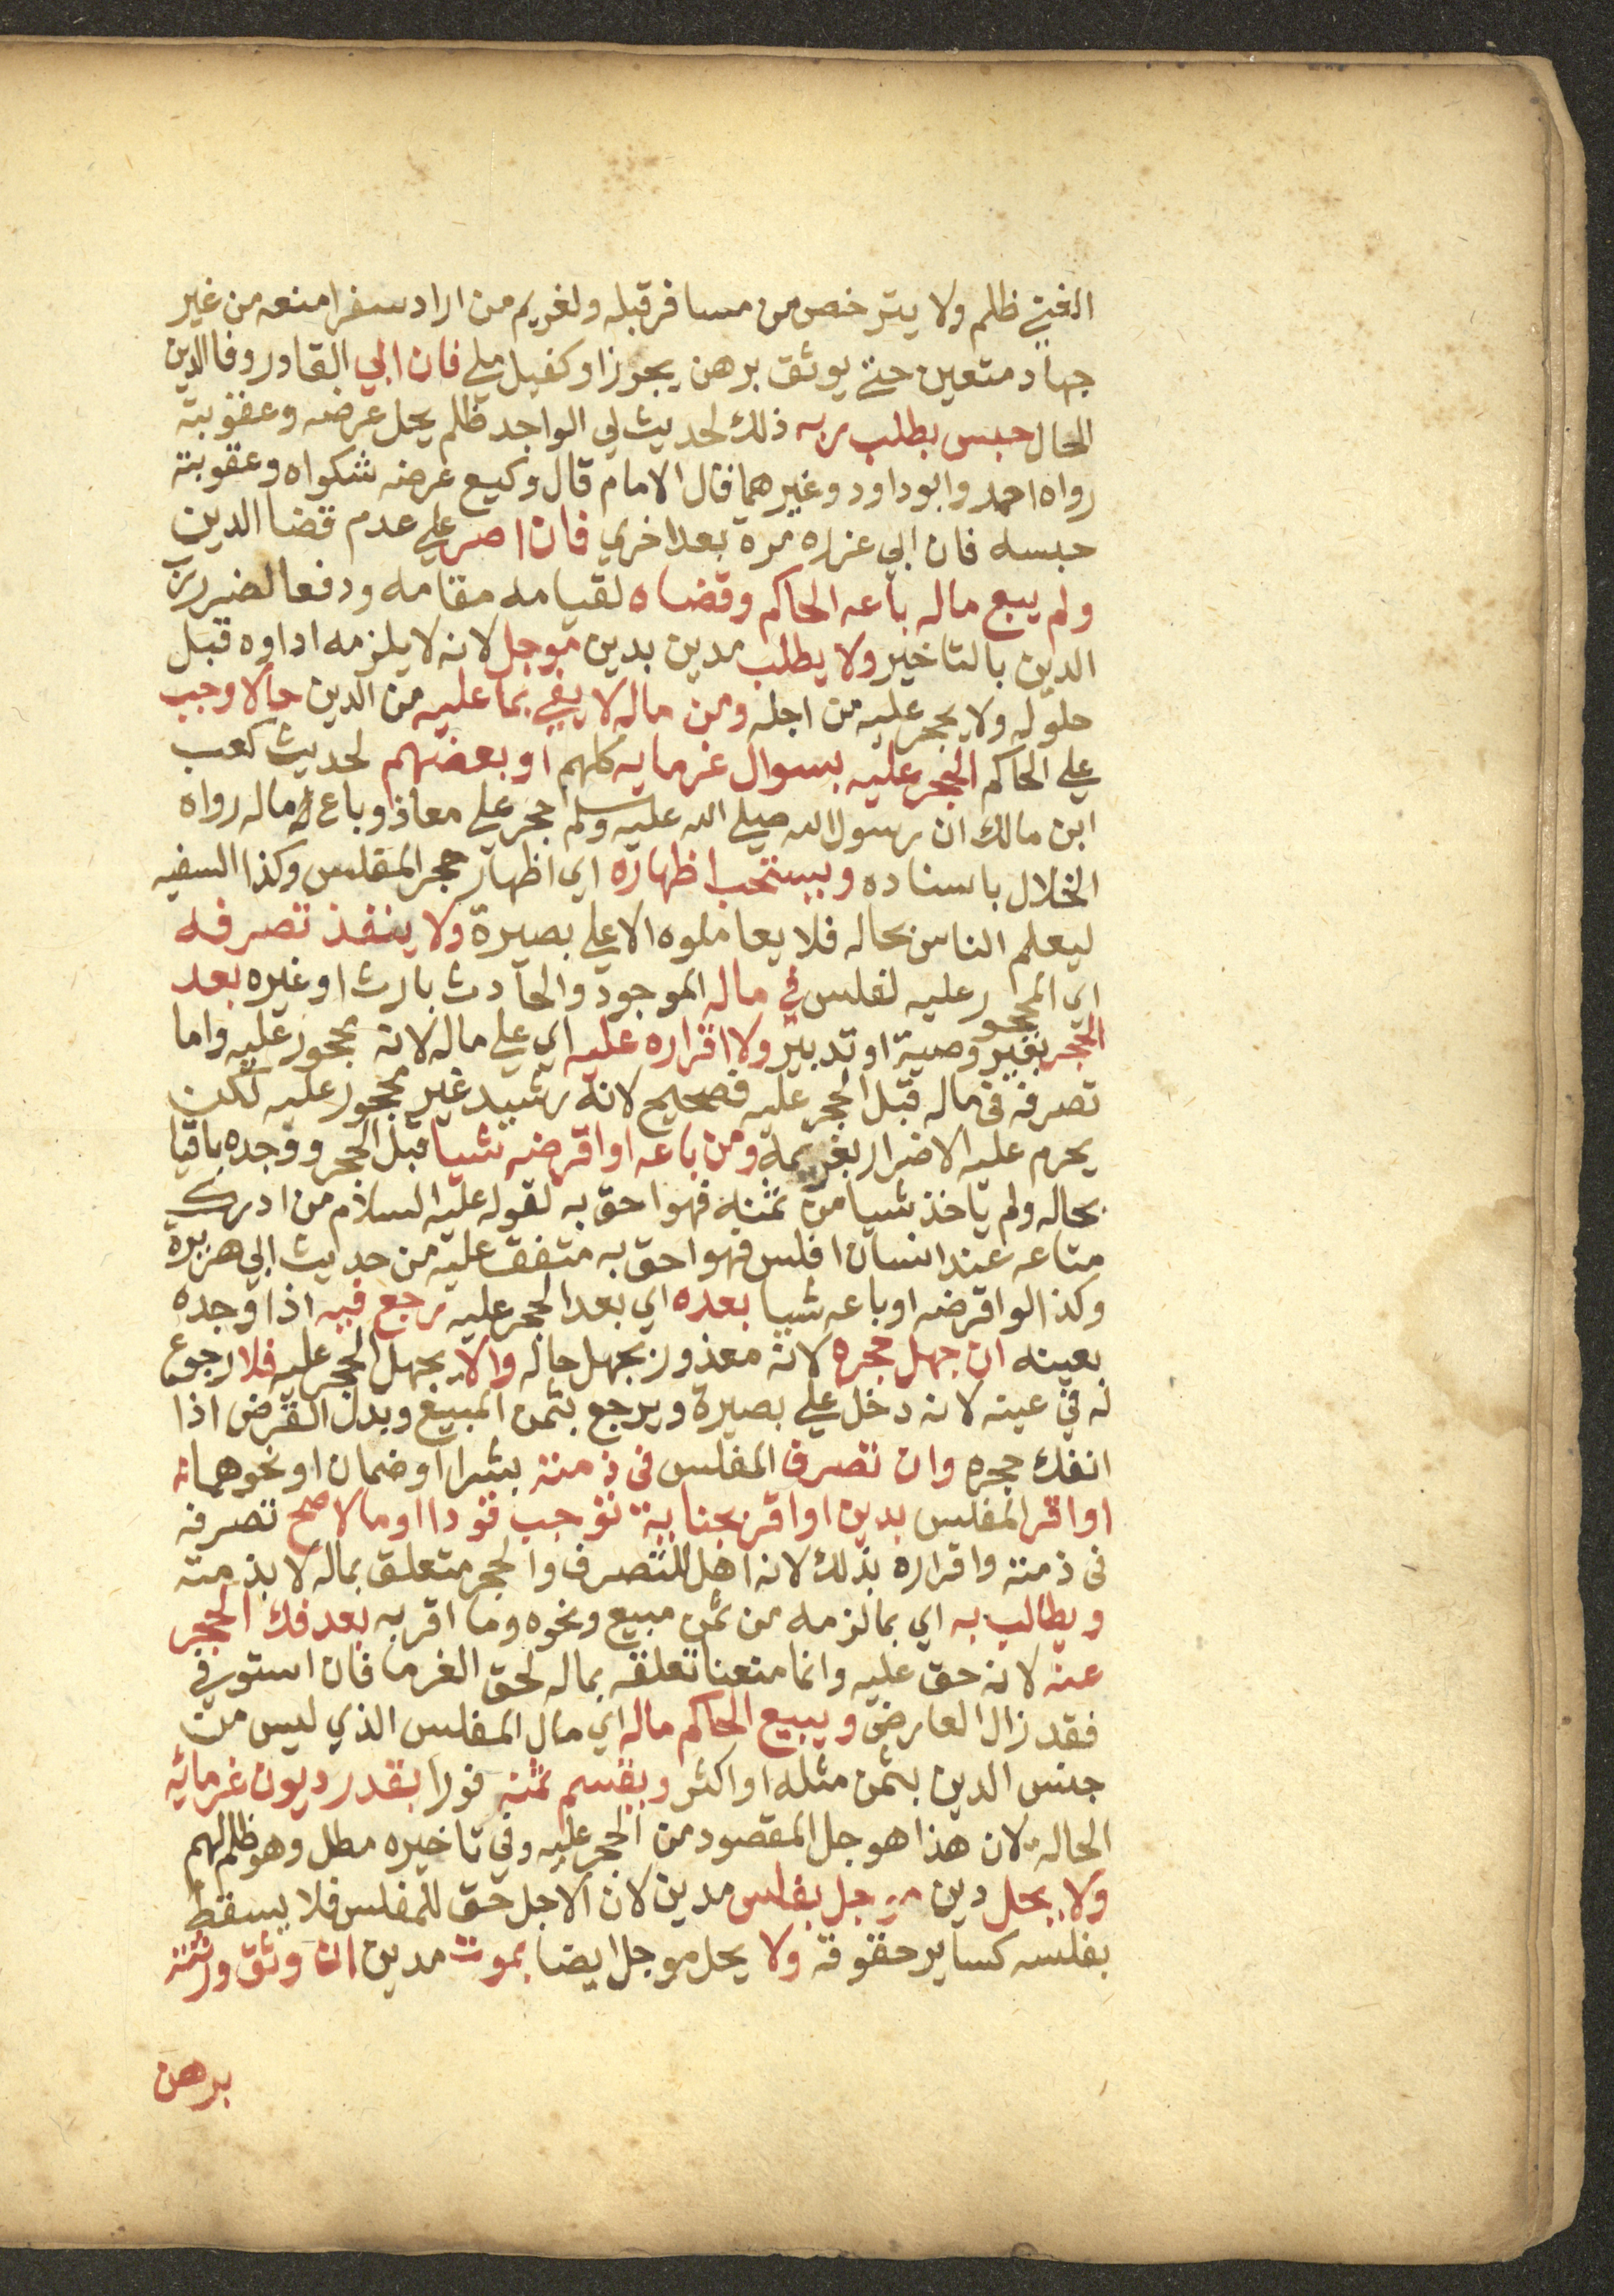 الغني ظلم ولا يترخص من مسافر قبله ولغريم من اراد سفرا منعه من غير
جهاد متعين حتي يوثق برهن يحوز او كفيل ملي فان ابي القادر وفا الدين
الحال حبس بطلب ربه ذلك لحديث لي الواجد ظلم يحل عرضه وعقوبته
رواه احمد وابو داود وغيرهما قال الامام قال وكيع عرضه شكواه وعقوبته
حبسه فان ابي عزره مرة بعد اخري فان اصر علي عدم قضا الدين
ولم يبع ماله باعه الحاكم وقضاه لقيامه مقامه ودفعا لضرر رب
الدين بالتاخير ولا يطلب مدين بدين موجل لانه لا يلزمه اداوه قبل
حلوله ولا يحجر عليه من اجله ومن ماله لا يفي بما عليه من الدين حالا وجب
علي الحاكم الحجر عليه بسوال غرمايه كلهم او بعضهم لحديث كعب
ابن مالك ان رسول الله صلي الله عليه وسلم حجر علي معاذ وباع ماله رواه
الخلال باسناده ويستحب اظهاره اي اظهار حجر المفلس وكذا السفيه
ليعلم الناس بحاله فلا يعاملوه الا علي بصيرة ولا ينفذ تصرفه
اي المحجور عليه لفلس في ماله الموجود والحادث بارث او غيره بعد
الحجر بغير وصية او تدبير ولا اقراره عليه اي علي ماله لانه محجور عليه واما
تصرفه في ماله قبل الحجر عليه فصحيح لانه رشيد غير محجور عليه لكن
يحرم عليه الاضرار بغريمه ومن باعه او اقرضه شيا قبل الحجر ووجده باقيا
بحاله ولم ياخذ شيا من ثمنه فهو احق به لقوله عليه السلام من ادرك
متاعه عند انسان افلس فهو احق به متفق عليه من حديث ابي هريرة
وكذا لو اقرضه او باعه شيا بعده اي بعد الحجر عليه رجع فيه اذا وجده
بعينه ان جهل حجره لانه معذور بجهل حاله والا يجهل الحجر عليه فلا رجوع
له في عينه لانه دخل علي بصيرة ويرجع بثمن المبيع وبدل القرض اذا
انفك حجره وان تصرف المفلس في ذمته بشرا او ضمان او نحوهما
او اقر المفلس بدين او اقر بجناية توجب قودا او مالا صح تصرفه
في ذمته واقراره بذلك لانه اهل للتصرف والحجر متعلق بماله لا بذمته
ويطالب به اي بما لزمه من ثمن مبيع ونحوه وما اقر به بعد فك الحجر
عنه لانه حق عليه وانما منعنا تعلقه بماله لحق الغرما فان استوفي
فقد زال العارض ويبيع الحاكم ماله اي مال المفلس الذي ليس من
جنس الدين بثمن مثله او اكثر ويقسم ثمنه فورا بقدر ديون غرمائه
الحالة لان هذا هو جل المقصود من الحجر عليه وفي تاخيره مطل وهو ظلم لهم
ولا يحل دين موجل بفلس مدين لان الاجل حق للمفلس فلا يسقط
بفلسه كساير حقوقه ولا يحل موجل ايضا بموت مدين ان وثق ورثته
برهن